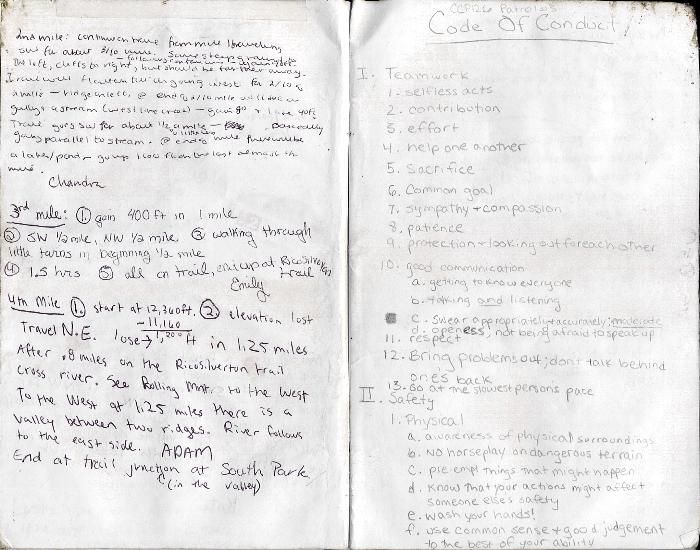 2nd mile: continue on trail from mile 1 traveling
SW for about 3/10 mile.
the left, cliffs to right, but should be farther away.
Trail will flatten till ongoing west for 2/10 of
a mile - ridge on left, @ end of 2/10 mile will be a
gully & a stream
Trail goes SW for about 1/2 a mile - basically
going parallel to stream. @ end of mile
a lake/pond - go up
mile.
Chandra
3rd mile: ① gain 400 ft in 1 mile
② SW 1/2 mile, NW 1/2 mile ③ walking through
little tarns in beginning 1/2 mile
④ 1.5 hrs ⑤ all on trail, end up at Rico Silverton
trail
Emily
4th Mile ① start at 12,360ft. ② elevation lost
-11,160
Travel N.E. lose → 1,200 ft in 1.25 miles
After .8 miles on the Ricosilverton trail
cross river. See Rolling Mnt. to the West
To the West at 1.25 miles there is a
valley between two ridges. River follows
to the east side. ADAM
End at trail junction at South Park
(in the valley)
Patrol
Code Of Conduct
I. Teamwork
1. selfless acts
2. contribution
3. effort
4. help one another
5. Sacrifice
6. Common goal
7. sympathy + compassion
8. patience
9. protection + looking out for each other
10. good communication
a. getting to know everyone
b. talking and listening
c. swear appropriately + accurately; moderate
d. openess; not being afraid to speak up
11. respect
12. Bring problems out; don't talk behind
ones back
13. Go at the slowest persons pace
II. Safety
1. Physical
a. awareness of physical surroundings
b. No horseplay on dangerous terrain
c. pre-empt things that might happen
d. Know that your actions might affect
someone else's safety
e. wash your hands!
f. use common sense + good judgement
to the best of your ability